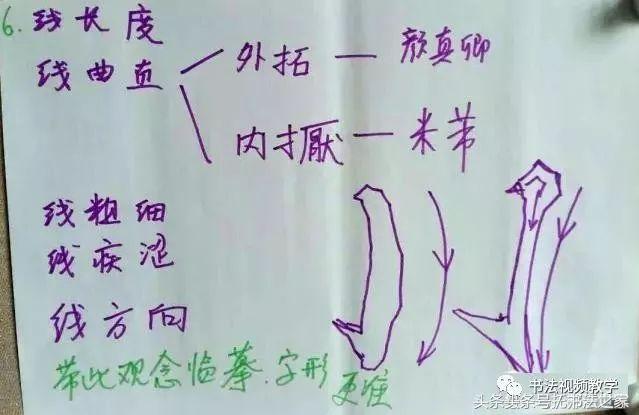 6. 线长度
线曲直 外拓 — 颜真卿
内擫 — 米芾
线粗细
线疾涩
线方向
带此观念临摹.字形更准
书法视频教学
头条号